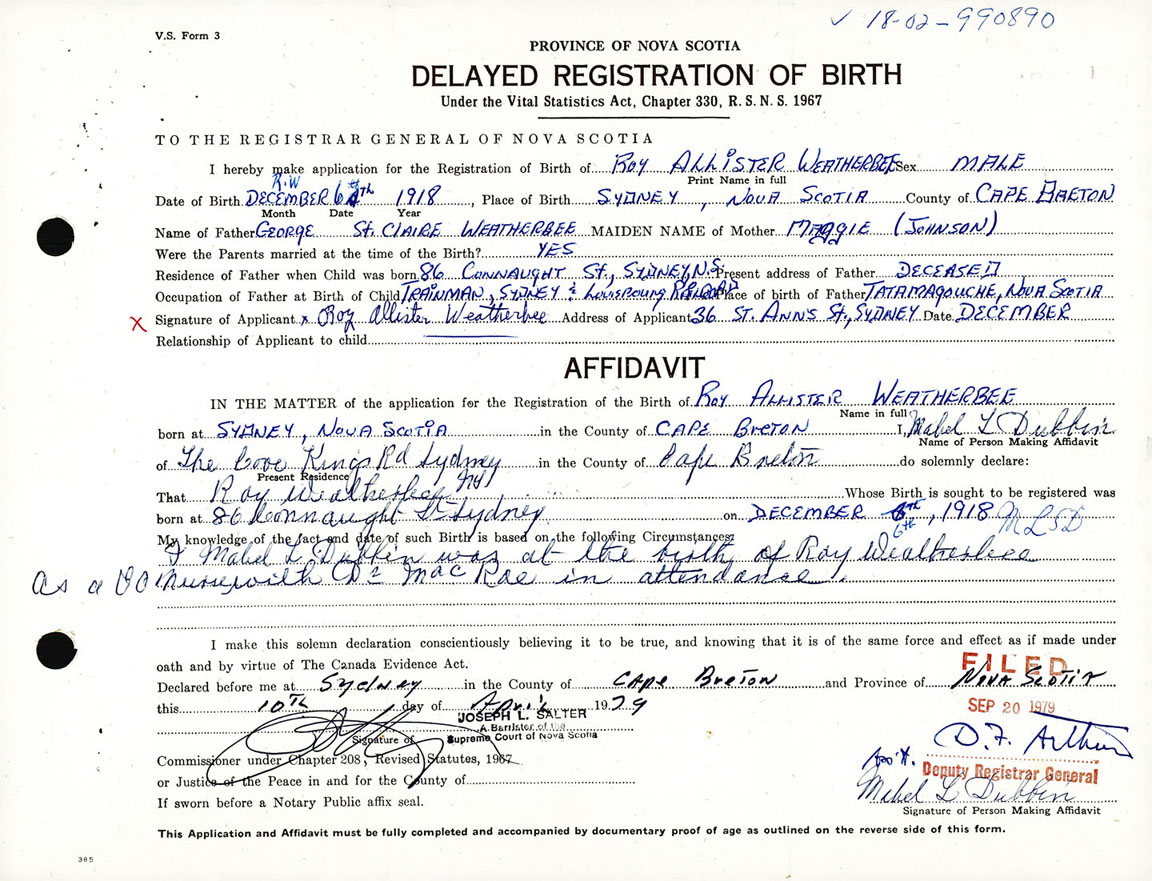 ✓ 18-02-990890
V.S. Form 3
PROVINCE OF NOVA SCOTIA
DELAYED REGISTRATION OF BIRTH
Under the Vital Statistics Act, Chapter 330, R.S.N.S. 1967
TO THE REGISTRAR GENERAL OF NOVA SCOTIA
I hereby make application for the Registration of Birth of ROY ALLISTER WEATHERBEE Sex MALE
R.W Print Name in full
Date of Birth DECEMBER 6th 1918, Place of Birth SYDNEY, NOVA SCOTIA County of CAPE BRETON
Month Date Year
Name of Father GEORGE ST. CLAIRE WEATHERBEE MAIDEN NAME of Mother MAGGIE (JOHNSON)
Were the Parents married at the time of the Birth? YES
Residence of Father when Child was born 86 CONNAUGHT ST., SYDNEY, N.S. Present address of Father DECEASED
Occupation of Father at Birth of Child TRAINMAN, SYDNEY & LOUISBOURG RAILROAD Place of birth of Father TATAMAGOUCHE, NOVA SCOTIA
X Signature of Applicant x Roy Allister Weatherbee Address of Applicant 36 ST. ANN'S ST., SYDNEY Date DECEMBER
Relationship of Applicant to child
AFFIDAVIT
IN THE MATTER of the application for the Registration of the Birth of ROY ALLISTER WEATHERBEE
Name in full
born at SYDNEY, NOVA SCOTIA in the County of CAPE BRETON I, Mabel L Dubbin
Name of Person Making Affidavit
of The Cove Kings Rd Sydney in the County of Cape Breton do solemnly declare:
Present Residence
That Roy Weatherbee Whose Birth is sought to be registered was
born at 86 Connaught St Sydney on DECEMBER 6th, 1918 MLSD
6th
My knowledge of the fact and date of such Birth is based on the following Circumstances:
I Mabel L Dubbin was at the birth of Roy Weatherbee
as a VO Nurse with Dr MacRae in attendance.
I make this solemn declaration conscientiously believing it to be true, and knowing that it is of the same force and effect as if made under
oath and by virtue of The Canada Evidence Act.
FILED
Declared before me at Sydney in the County of Cape Breton and Province of Nova Scotia
this 10th day of April 1979
SEP 20 1979
JOSEPH L. SALTER
A Barrister of the
Signature of Supreme Court of Nova Scotia
D.F. Arthur
Commissioner under Chapter 208, Revised Statutes, 1967
Deputy Registrar General
or Justice of the Peace in and for the County of
Mabel L Dubbin
If sworn before a Notary Public affix seal.
Signature of Person Making Affidavit
This Application and Affidavit must be fully completed and accompanied by documentary proof of age as outlined on the reverse side of this form.
385